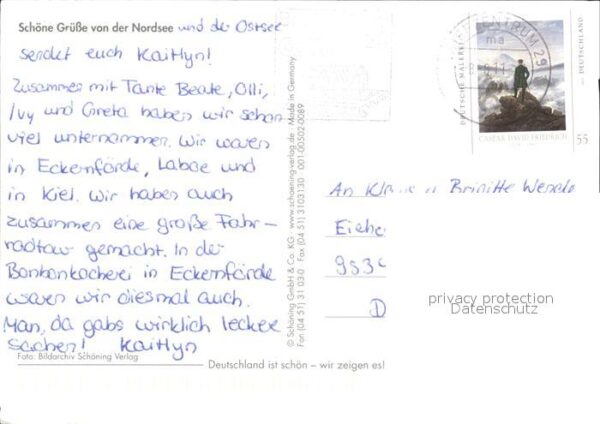 Schöne Grüße von der Nordsee und der Ostsee
sendet euch Kaitlyn!
Zusammen mit Tante Beate, Olli,
Ivy und Greta haben wir schon
viel unternommen. Wir waren
in Eckernförde, Laboe und
in Kiel. Wir haben auch
zusammen eine große Fahr-
radtour gemacht. In der
Bonbonkocherei in Eckernförde
waren wir diesmal auch.
Man, da gabs wirklich leckere
Sachen! Kaitlyn
Foto: Bildarchiv Schöning Verlag
Deutschland ist schön – wir zeigen es!
© Schöning GmbH & Co. KG · www.schoening-verlag.de · Made in Germany
Fon (04 51) 31 03-0 · Fax (04 51) 3103130 · 001-00502-0089
ZENTRUM 29
ma
DEUTSCHE MALEREI
DEUTSCHLAND
CASPAR DAVID FRIEDRICH
55
An Brigitte
D
privacy protection
Datenschutz